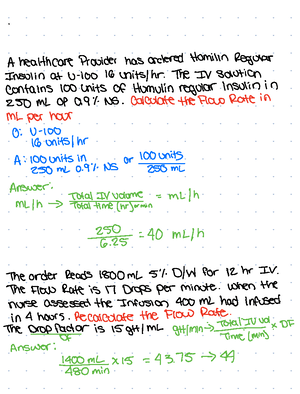 A healthcare Provider has ordered Homilin Regular
Insulin at U-100 16 units/hr. The IV solution
contains 100 units of Humulin regular Insulin in
250 mL of 0.9% NS. Calculate the Flow Rate in
mL per hour
O: U-100
16 units/hr
A: 100 units in
250 mL 0.9% NS or 100 units
250 mL
Answer:
mL/h → Total IV volume = mL/h
Total time (hr) or min
250 = 40 mL/h
6.25
The order Reads 1800 mL 5% D/W for 12 hr IV.
The Flow Rate is 17 Drops per minute. when the
nurse assessed the Infusion 400 mL had infused
in 4 hours. Recalculate the Flow Rate.
The Drop factor is 15 gtt/mL. gtt/min → Total IV vol × DF
DF Time (min)
Answer:
1400 mL × 15 = 43.75 → 44
480 min